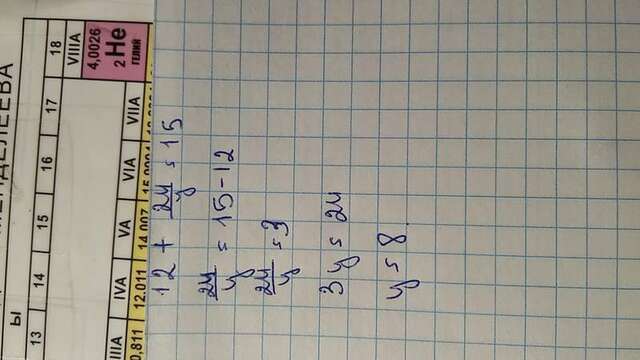 МЕНДЕЛЕЕВА
Ы
13 14 15 16 17 18
VIIIA
4,0026
2 He
ГЕЛИЙ
IIIA IVA VA VIA VIIA
0,811 12.011 14,007
12 + 24/y = 15
24/y = 15 - 12
24/y = 3
3y = 24
y = 8.